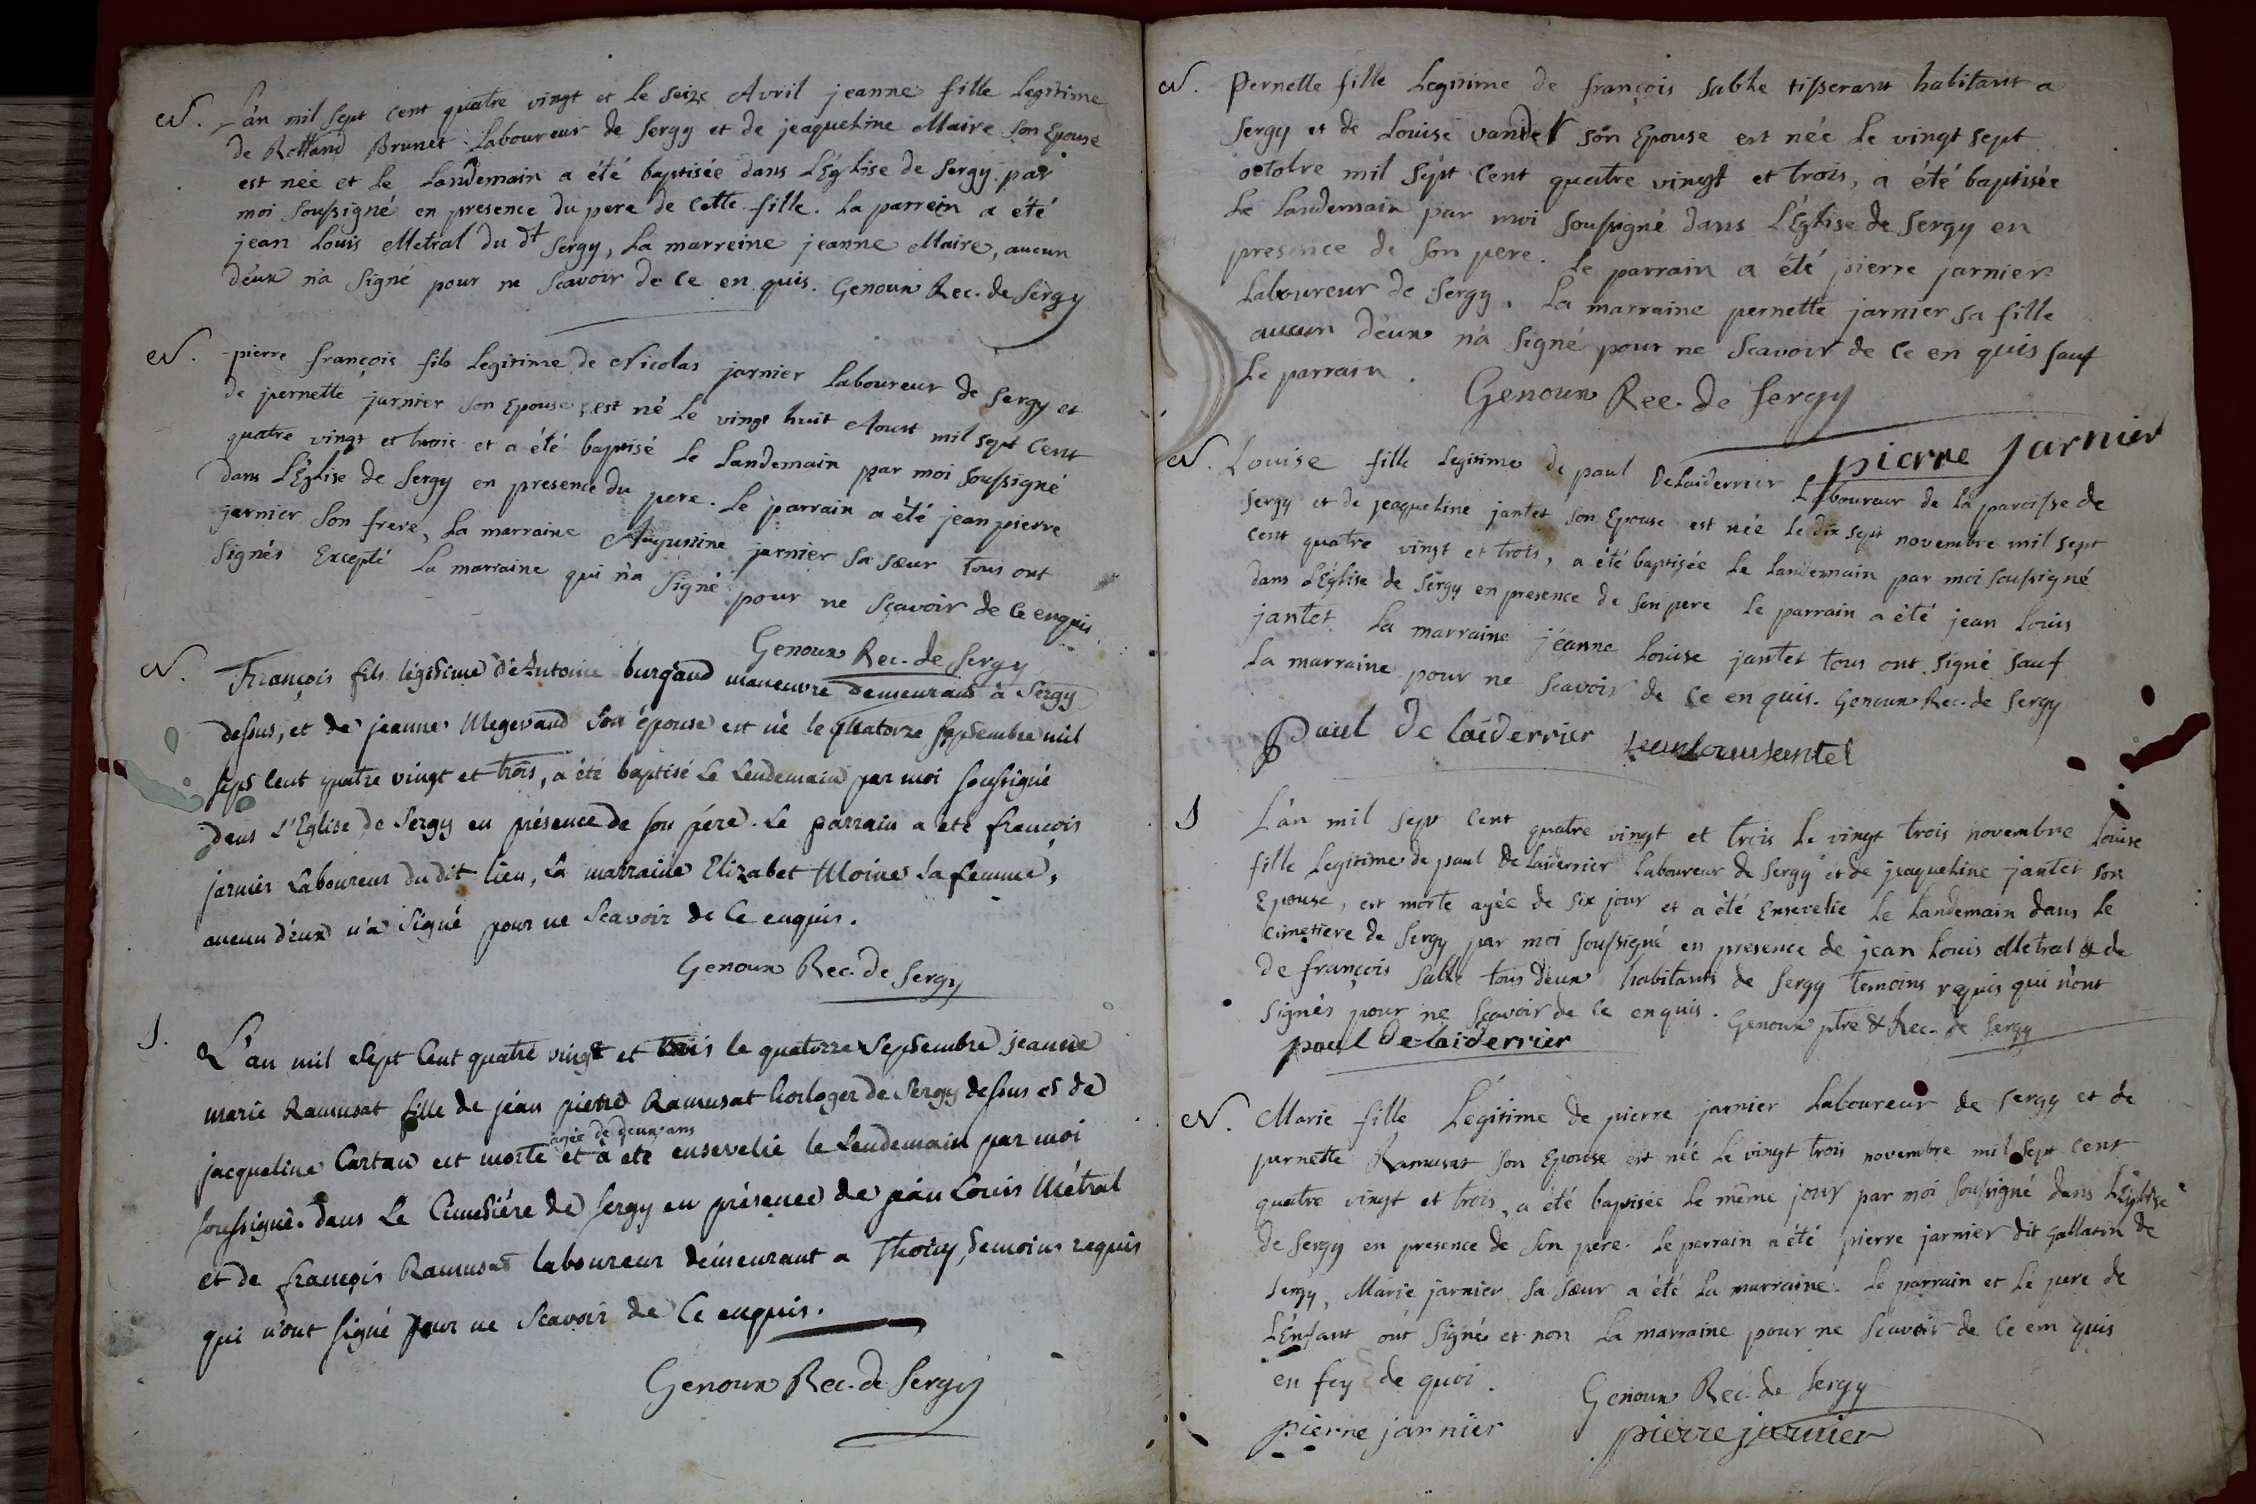 N. L'àn mil sept cent quatre vingt et Le seize Avril jeanne fille Legitime
de Rolland Brunet Laboureur de Sergy et de jeaqueline Maire son Epouse
est neé et Le Landemain a été baptisée dans L'Église de Sergy par
moi soussigné en presence du pere de cette fille. La parrein a été
jean Louis Metral du dt Sergy, La marreine jeanne Maire, aucun
d'eux n'a signé pour ne scavoir de ce en quis. Genoux Rec. de Sergy
N. pierre françois fils Legitime de Nicolas jarnier Laboureur de Sergy et
de pernette jarnier son Epouse, est né Le vingt huit Aoust mil sept cent
quatre vingt et trois et a été baptisé Le Landemain par moi soussigné
dans L'Église de Sergy en presence du pere. Le parrain a été jean pierre
jarnier son frere, La marraine Augustine jarnier sa sœur tous ont
signés Excepté La marraine qui n'a signé pour ne sçavoir de ce enquis
Genoux Rec. de Sergy
N. François fils légitime d'Antoine burgaud maneuvre demeurant à Sergy
dessus, et de jeanne Megevand son épouse est né le quatorze septembre mil
sept cent quatre vingt et trois, a été baptisé Le Lendemain par moi soussigné
dans L'Eglise de Sergy en présence de son pére. Le parrain a eté françois
jarnier Laboureur du dit lieu, La marraine Elizabet Moine sa femme,
aucun d'eux n'a signé pour ne scavoir de ce enquis.
Genoux Rec. de Sergy
S. L'an mil sept cent quatre vingt et trois le quatorze septembre jeanne
marie Ramusat fille de jean pierre Ramusat horloger de Sergy dessus et de
agée de deux ans
jacqueline Cartan est morte et a eté ensevelie le Lendemain par moi
soussigné. dans Le Cimetiére de Sergy en présence de jean Louis Métral
et de françois Ramusat laboureur démeurant a Thoiry, temoins requis
qui n'ont signé pour ne scavoir de ce enquis.
Genoux Rec. de Sergy
N. Pernette fille Legitime de françois Sabke tisserant habitant a
Sergy et de Louise vandel son Epouse est née Le vingt sept
octobre mil sépt cent quatre vingt et trois, a été baptisée
Le Landemain par moi soussigné dans L'Église de Sergy en
presence de son pere. Le parrain a été pierre jarnier
Laboureur de Sergy. La marraine pernette jarnier sa fille
aucun d'eux n'a signé pour ne scavoir de ce en quis sauf
Le parrain. Genoux Rec. de Sergy
pierre jarnier
N. Louise fille Legitime de paul DeLaiderrier Laboureur de la paroisse de
Sergy et de jeaqueline jantet son Epouse est née Le dix sept novembre mil sept
cent quatre vingt et trois, a été baptisée Le Landemain par moi soussigné
dans L'Église de Sergy en presence de son pere Le parrain a été jean Louis
jantet La marraine jeanne Louise jantet tous ont signé sauf
La marraine pour ne scavoir de ce en quis. Genoux Rec. de Sergy
Paul De laiderrier jean Louis jantet
S L'àn mil sept cent quatre vingt et trois Le vingt trois novembre Louise
fille Legitime de paul DeLaiderrier Laboureur de Sergy et de jeaqueline jantet son
Epouse, est morte agée de six jour et a été Ensevelie Le Landemain dans Le
cimetiere de Sergy par moi soussigné en presence de jean Louis Metral & de
de françois Sabke tous deux habitants de Sergy temoins requis qui n'ont
signés pour ne sçavoir de ce enquis. Genoux ptre & Rec. de Sergy
paul De laiderrier
N. Marie fille Légitime de pierre jarnier Laboureur de Sergy et de
pernette Ramusat son Epouse est née Le vingt trois novembre mil sept cent
quatre vingt et trois, a été baptisée Le même jour par moi soussigné dans L'Eglise
de Sergy en presence de son pere. Le parrain a été pierre jarnier dit Gallatin de
Sergy, Marie jarnier sa sœur a été La marraine. Le parrain et Le pere de
L'Énfant ont signés et non La marraine pour ne scavoir de ce en quis
en foy de quoi. Genoux Rec. de Sergy
pierre jarnier pierre jarnier